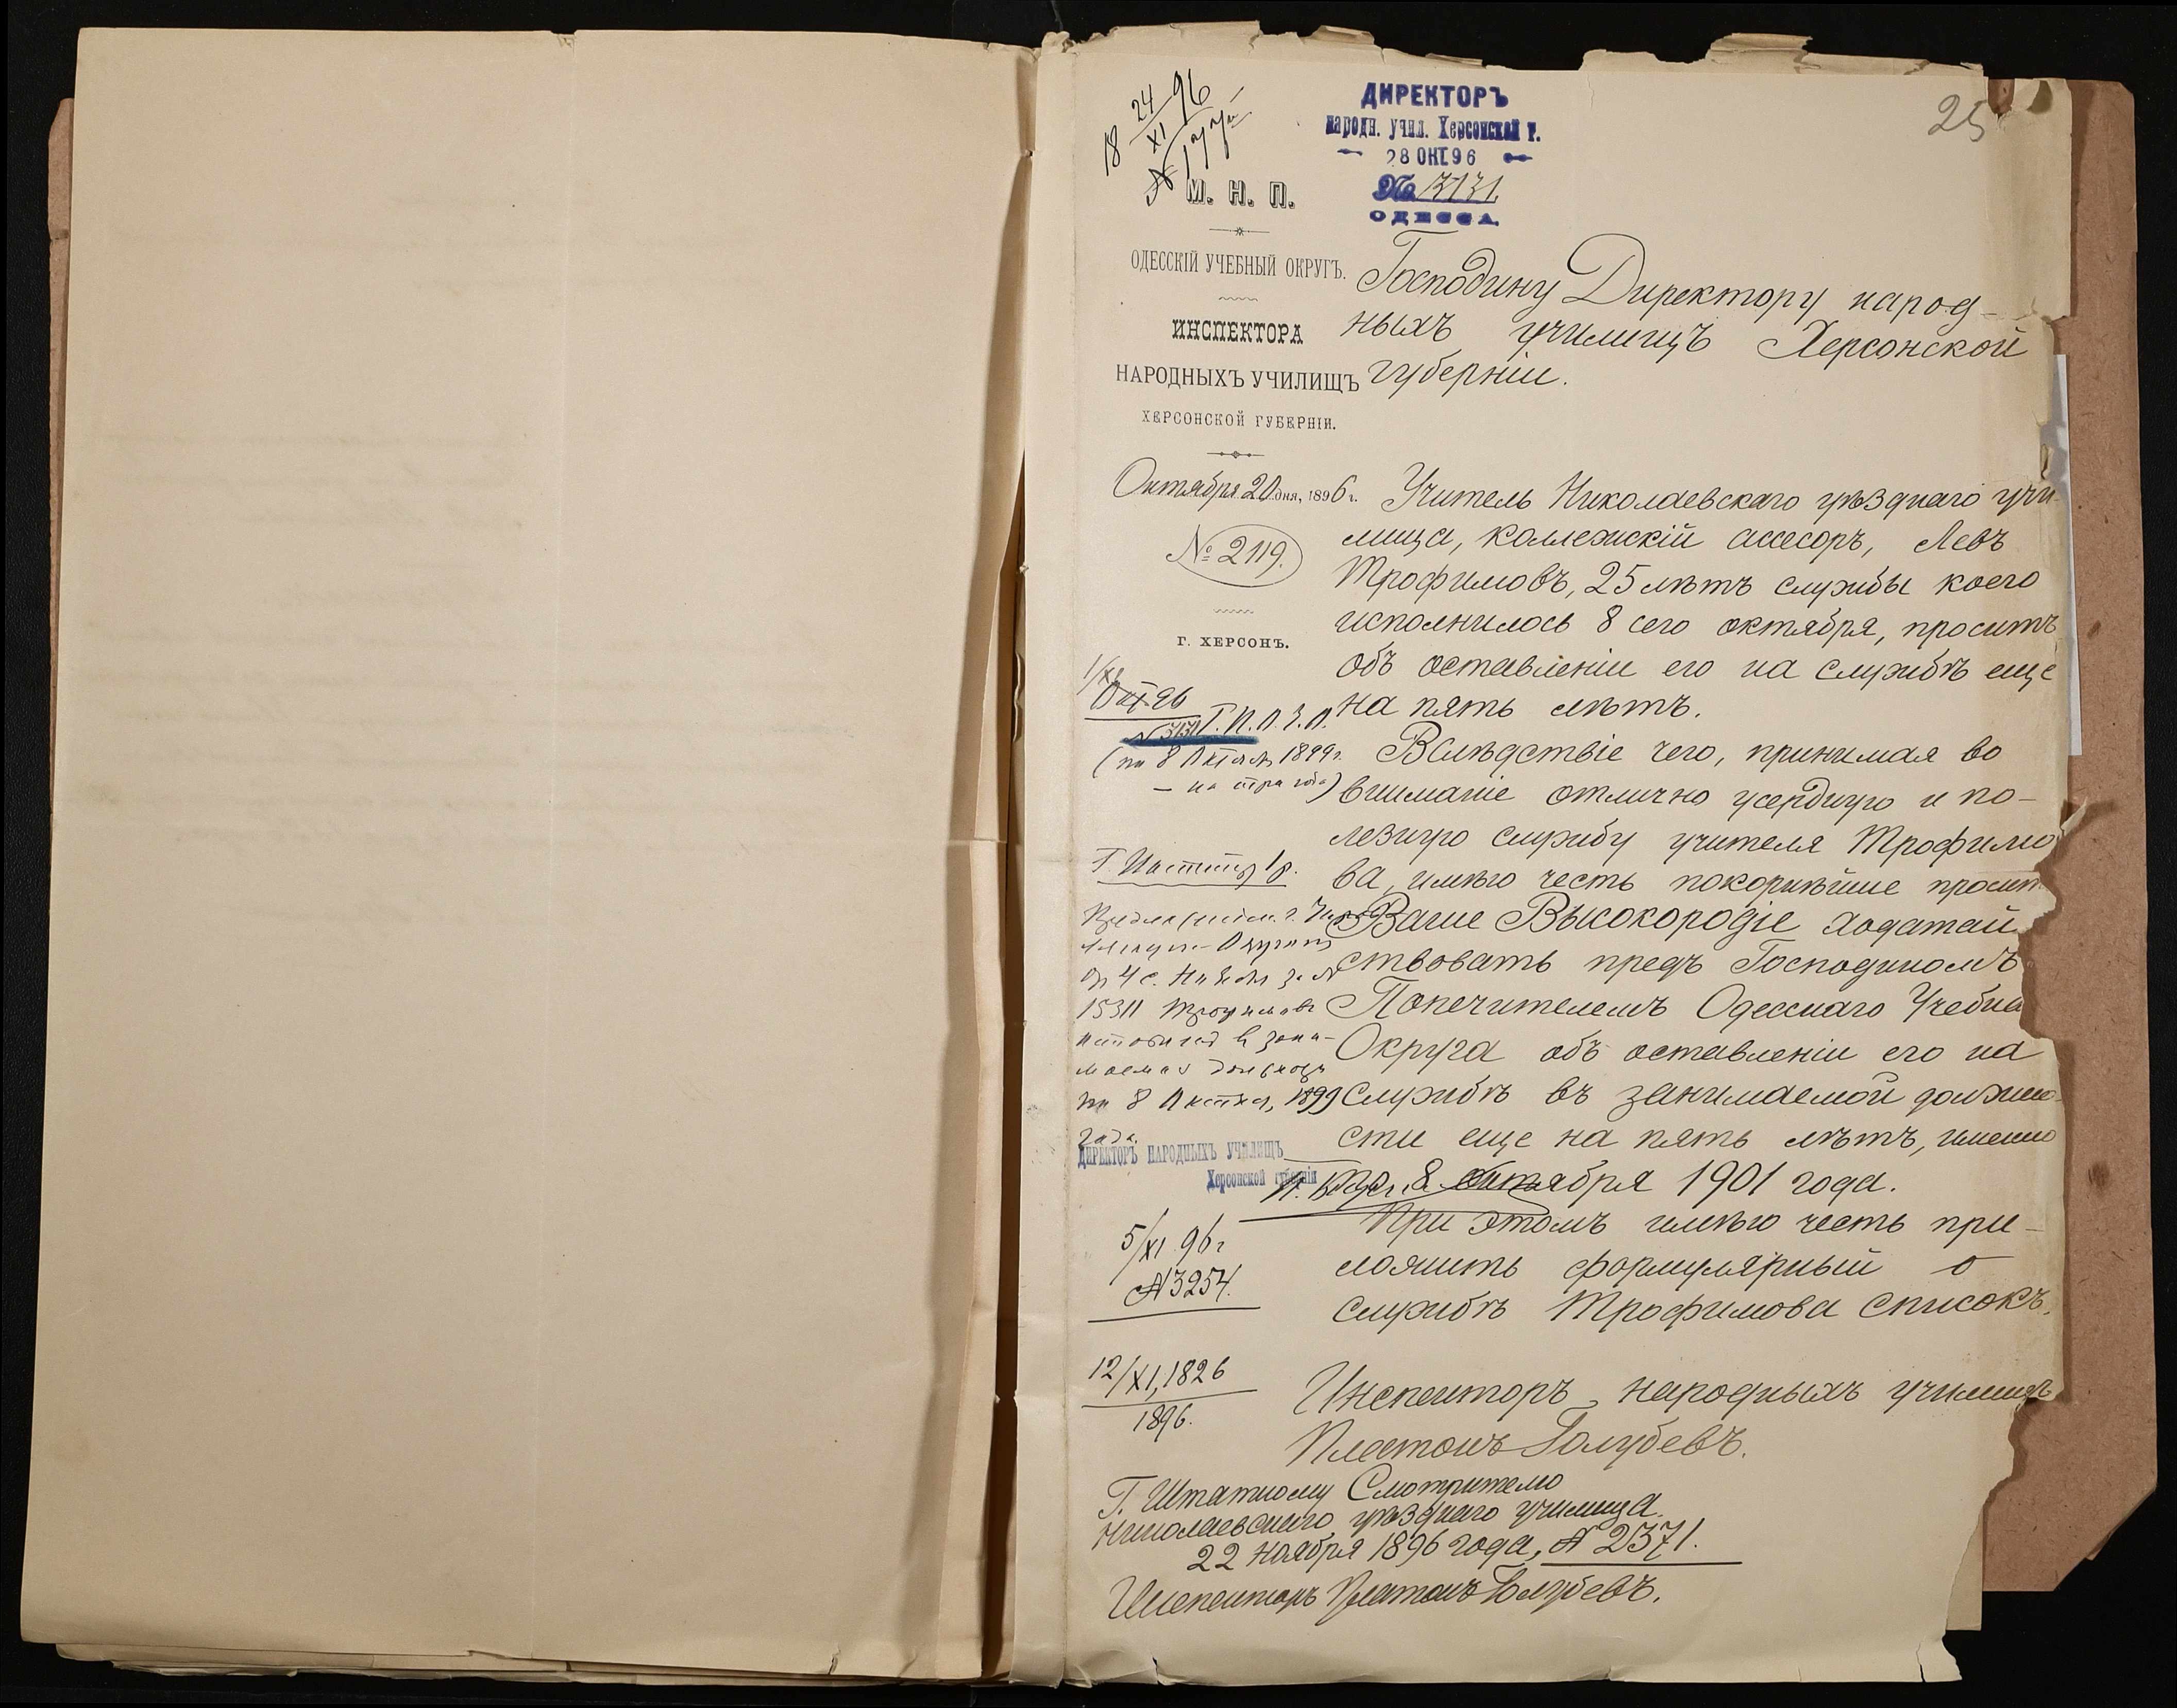 25
18 24/XI 96
ДИРЕКТОРЪ
народн. учил. Херсонской г.
28 ОКТ 96
№ 3131.
ОДЕССА
М. Н. П.
ОДЕССКІЙ УЧЕБНЫЙ ОКРУГЪ.
ИНСПЕКТОРА
НАРОДНЫХЪ УЧИЛИЩЪ
ХЕРСОНСКОЙ ГУБЕРНІИ.
Октября 20 дня, 1896 г.
№ 2119.
Г. ХЕРСОНЪ.
Господину Директору народ-
ныхъ училищъ Херсонской
губерніи.
Учитель Николаевскаго уѣзднаго учи-
лища, коллежскій ассесоръ, Левъ
Трофимовъ, 25 лѣтъ службы коего
исполнилось 8 сего октября, проситъ
объ оставленіи его на службѣ еще
на пять лѣтъ.
Вслѣдствіе чего, принимая во
вниманіе отлично усердную и по-
лезную службу учителя Трофимо
ва, имѣю честь покорнѣйше просить
Ваше Высокородіе ходатай
ствовать предъ Господиномъ
Попечителемъ Одесскаго Учебна
Округа объ оставленіи его на
службѣ въ занимаемой должно-
сти еще на пять лѣтъ, именно
по 8 октября 1901 года.
При этомъ имѣю честь при-
ложить формулярный о
службѣ Трофимова списокъ.
Инспекторъ народныхъ училищъ
Платонъ Голубевъ.
№ 3131
(по 8 Октября 1899 г.
— на три года)
15311 Трофимовъ
по 8 Октября, 1899
года.
ДИРЕКТОРЪ НАРОДНЫХЪ УЧИЛИЩЪ
Херсонской губерніи
5/XI 96 г
№ 3254.
12/XI, 1826
1896.
Г. Штатному Смотрителю
Николаевскаго уѣзднаго училища.
22 ноября 1896 года, № 2371.
Инспекторъ Платонъ Голубевъ.